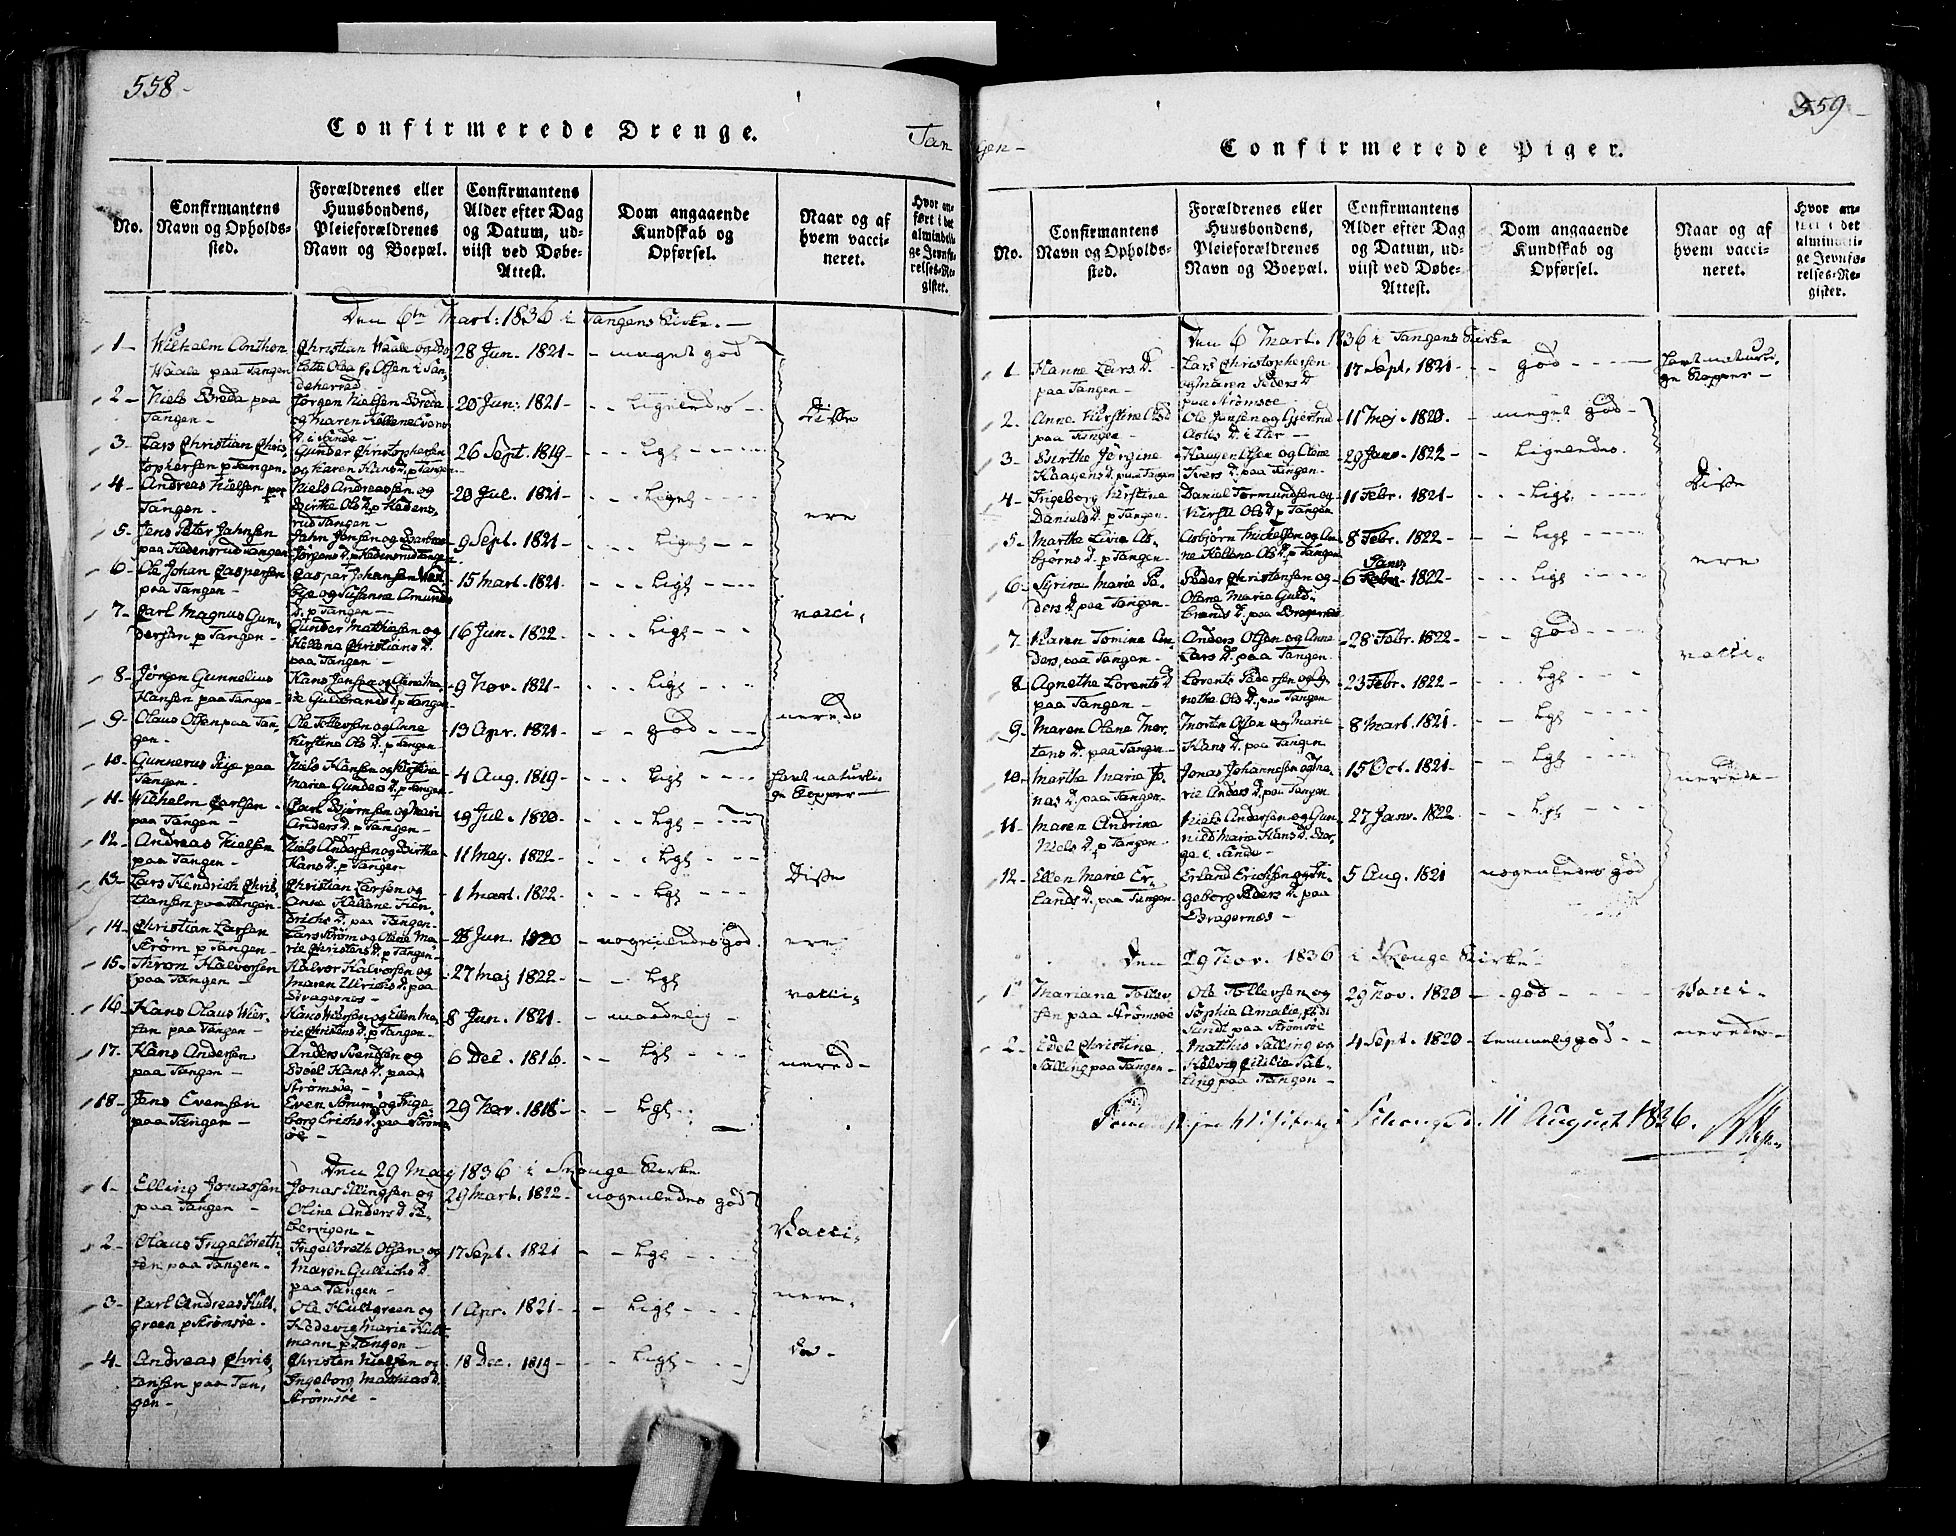 558-
Confirmerede Drenge.
Tan
No.
Confirmantens Navn og Opholds-sted.
Forældrenes eller Huusbondens, Pleieforældrenes Navn og Boepæl.
Confirmantens Alder efter Dag og Datum, ud-viist ved Døbe-Attest.
Dom angaaende Kundskab og Opførsel.
Naar og af hvem vacci-neret.
Hvor an-ført i det alminde-li-ge Jevnfø-relses-Re-gister.
Den 6te Mart: 1836 i Tangens Kirke.
1- Wilhelm Anthon
Waale paa Tangen
Christian Waale
28 Jun. 1821-
- meget god
2- Niels Breda paa
Tangen-
Jørgen Nielsen Breda
og Maren
20 Jun: 1821-
- - Ligeledes -
Disse
3- Lars Christian Chris
tophersen p Tangen.
Gunder Christophersen
og Karen Hans D. p Tangen
26 Sept. 1819-
- - Lgs - - -
4- Andreas Nielsen paa
Tangen-
Niels Andreassen og
Birthe Ols D. p Hedens,
rud Tangen-
20 Jul. 1821
- - Liges - -
ere
5- Jens Peter Jahnsen
paa Hedensrud Tangen
Jahn Jensen og Barbra
Jørgens D. p Hedensrud Tangen
9 Sept. 1821
- - - Liges - -
6- Ole Johan Caspersen
paa Tangen-
Casper Johansen
bye og Susanne Amunds
D. p Tangen-
15 Mart. 1821
- - Ligs - - -
7- Carl Magnus Gun,
dersen p Tangen-
Gunder Mathiesen og
Hellene Christians D.
paa Tangen-
16 Jun. 1822-
- - Ligs - -
vacci,
8- Jørgen Gunnelius
Hansen paa Tangen-
Hans Jensen og Anne Ma,
rie Guldbrands D. p Tangen
9 Nov. 1821-
- - Ligs - -
9- Olaus Olsen paa Tan,
gen-
Ole Tollevsen og Anne
Kirstine Ols D. p Tangen-
13 Apr. 1821
- - god - - -
nerede
10- Gunnerus Rye paa
Tangen-
Niels Hansen og Kirstine
Marie Gunders D. p Tangen-
4 Aug. 1819-
- - Ligs - - -
havt naturli,
ge Kopper-
11- Wilhelm Carlsen-
paa Tangen-
Carl Bjørnsen og Mari
Anders D. p Tangen-
19 Jul. 1820-
- - Lgs - - -
12- Andreas Nielsen
paa Tangen-
Niels Andersen og Birthe
Hans D. p Tangen-
11 May. 1822-
- - Lgs - -
13- Lars Hendrich Chris,
tiansen paa Tangen-
Christian Larsen og
Anne Hellene Hen,
drichs D. paa Tangen-
1 Mart. 1822-
- - Lgs - -
Disse
14- Christian Larsen
Strøm p Tangen-
Lars Strøm og Olene Ma,
rie Christens D. p Tangen-
Jun. 1820
- nogenledes god
ere
15- Thron Halvorsen
paa Tangen-
Halvor Halvorsen og
Maren Ulrichs D. paa
Bragernæs-
27 Maj 1822-
- - Lgs
vacci-
16- Hans Olaus Wer,
sen paa Tangen-
Hans Wersen og Ellen Ma,
rie Christens D. p Tangen-
8 Jun. 1821-
- maadelig-
17. Hans Andersen
paa Tangen-
Anders Svendsen og
Hans D. paa
Strømsøe-
6 Dec. 1816-
- - Lgs - -
nered-
18- Jens Evensen
paa Tangen-
Even Sørum og Inge
borg Erichs D. paa Strøm
søe-
29 Nov. 1818
- - Lgs -
Den 29 May 1836 i Skouge Kirke
1- Elling Jonassen
paa Tangen-
Jonas Ellingsen og
Oline Anders D.
bervigen-
29 Mart. 1822-
nogenledes god
2- Olaus Ingelbreth
sen paa Tangen-
Ingelbreth Olsen og
Maren Gullichs D.
paa Tangen-
17 Sept. 1821
- - Lgs - - -
Vacci,
3- Carl Andreas Hult,
green p Strømsøe.
Ole Hultgreen og
Hedevig Marie
mann p Tangen-
1 Apr. 1821-
- Ligs - - -
nere,
4- Andreas Chris,
tensen paa Tan,
gen-
Christen Nielsen og
Ingeborg Mathias D.
Strømsøe-
18 Dec. 1819-
- - Ligs - - -
de-
gen-
559-
Confirmerede Piger.
No.
Confirmantens Navn og Opholds-sted.
Forældrenes eller Huusbondens, Pleieforældrenes Navn og Boepæl.
Confirmantens Alder efter Dag og Datum, ud-viist ved Døbe-Attest.
Dom angaaende Kundskab og Opførsel.
Naar og af hvem vacci-neret.
Hvor an-ført i det alminde-li-ge Jevnfø-relses-Re-gister.
Den 6 Mart. 1836 i Tangens Kirke
1. Hanne Lars D.
paa Tangen-
Lars Christophersen
og Maren Peders D.
paa Strømsøe
17 Sept. 1821-
- god - - -
havt naturli,
ge Kopper-
2. Anne Kirstine
paa Tangen-
Ole Jensen og Gjertrud
D. i Lier-
11 Maj. 1820-
- meget god-
3- Birthe Jørgine
Haagens D. paa Tangen
Haagen Olsen og Olene
Ivers D. paa Tangen-
29 Janv. 1822-
- Ligeledes.
Disse
4- Ingeborg Kirstine
Daniels D. p Tangen-
Daniel Tormundsen og
Kirsti Ols D. p Tangen
11 Febr. 1821-
- - Ligs. - - -
5- Marthe Livie As,
bjørns D. p Tangen-
Asbjørn Mickelsen og An,
ne Hellene Ols D. p Tangen
8 Febr. 1822-
- - Ligs - - -
ere
6- Syrin Marie Pe,
ders D. paa Tangen-
Peder Christensen og
Olene Marie Guld,
brands D. paa Bragernæs
6 Janv. 1822-
- - Ligs - - -
7. Karen Tomine An
ders, paa Tangen-
Anders Olsen og Anne
Lars D. paa Tangen-
28 Febr. 1822-
- - god - - -
vacci,
8 Agnethe Lorents D.
paa Tangen-
Lorents Pedersen og Ag,
nethe Ols D. paa Tangen-
23 Febr. 1822-
- - Lgs - -
9- Maren Olene Mor,
tens D. paa Tangen-
Morten Olsen og Marie
Hans D. paa Tangen-
8 Mart. 1821-
- - Lgs - -
10- Marthe Marie Jo,
nas D. paa Tangen-
Jonas Johannesen og Ma,
rie Anders D. paa Tangen
15 Oct. 1821-
- - Lgs - - -
nerede-
11- Maren Andrine
Niels D. p Tangen-
Niels Andersen og Gun
nild Marie Hans D.
i Sande-
27 Janv. 1822.
- - Lgs - - -
12- Ellen Marie Er,
lands D. paa Tangen-
Erland Erichsen og In,
geborg Peders D. paa
Bragernæs-
5 Aug. 1821
nogenledes god
Den 29 Nov. 1836 i Skouge Kirke-
1. Mariane Tollev,
sen paa Strømsøe
Ole Tollevsen og
Sophie Amalie, født
Sundt paa Strømsøe
29 Nov. 1820
- - god - - -
Vacci-
2- Edel Christine
Salling paa Tangen-
Matthis Salling og
Cicilie Sal,
ling paa Tangen-
4 Sept. 1820-
temmelig god-
nerede-
d. 11 August 1836.